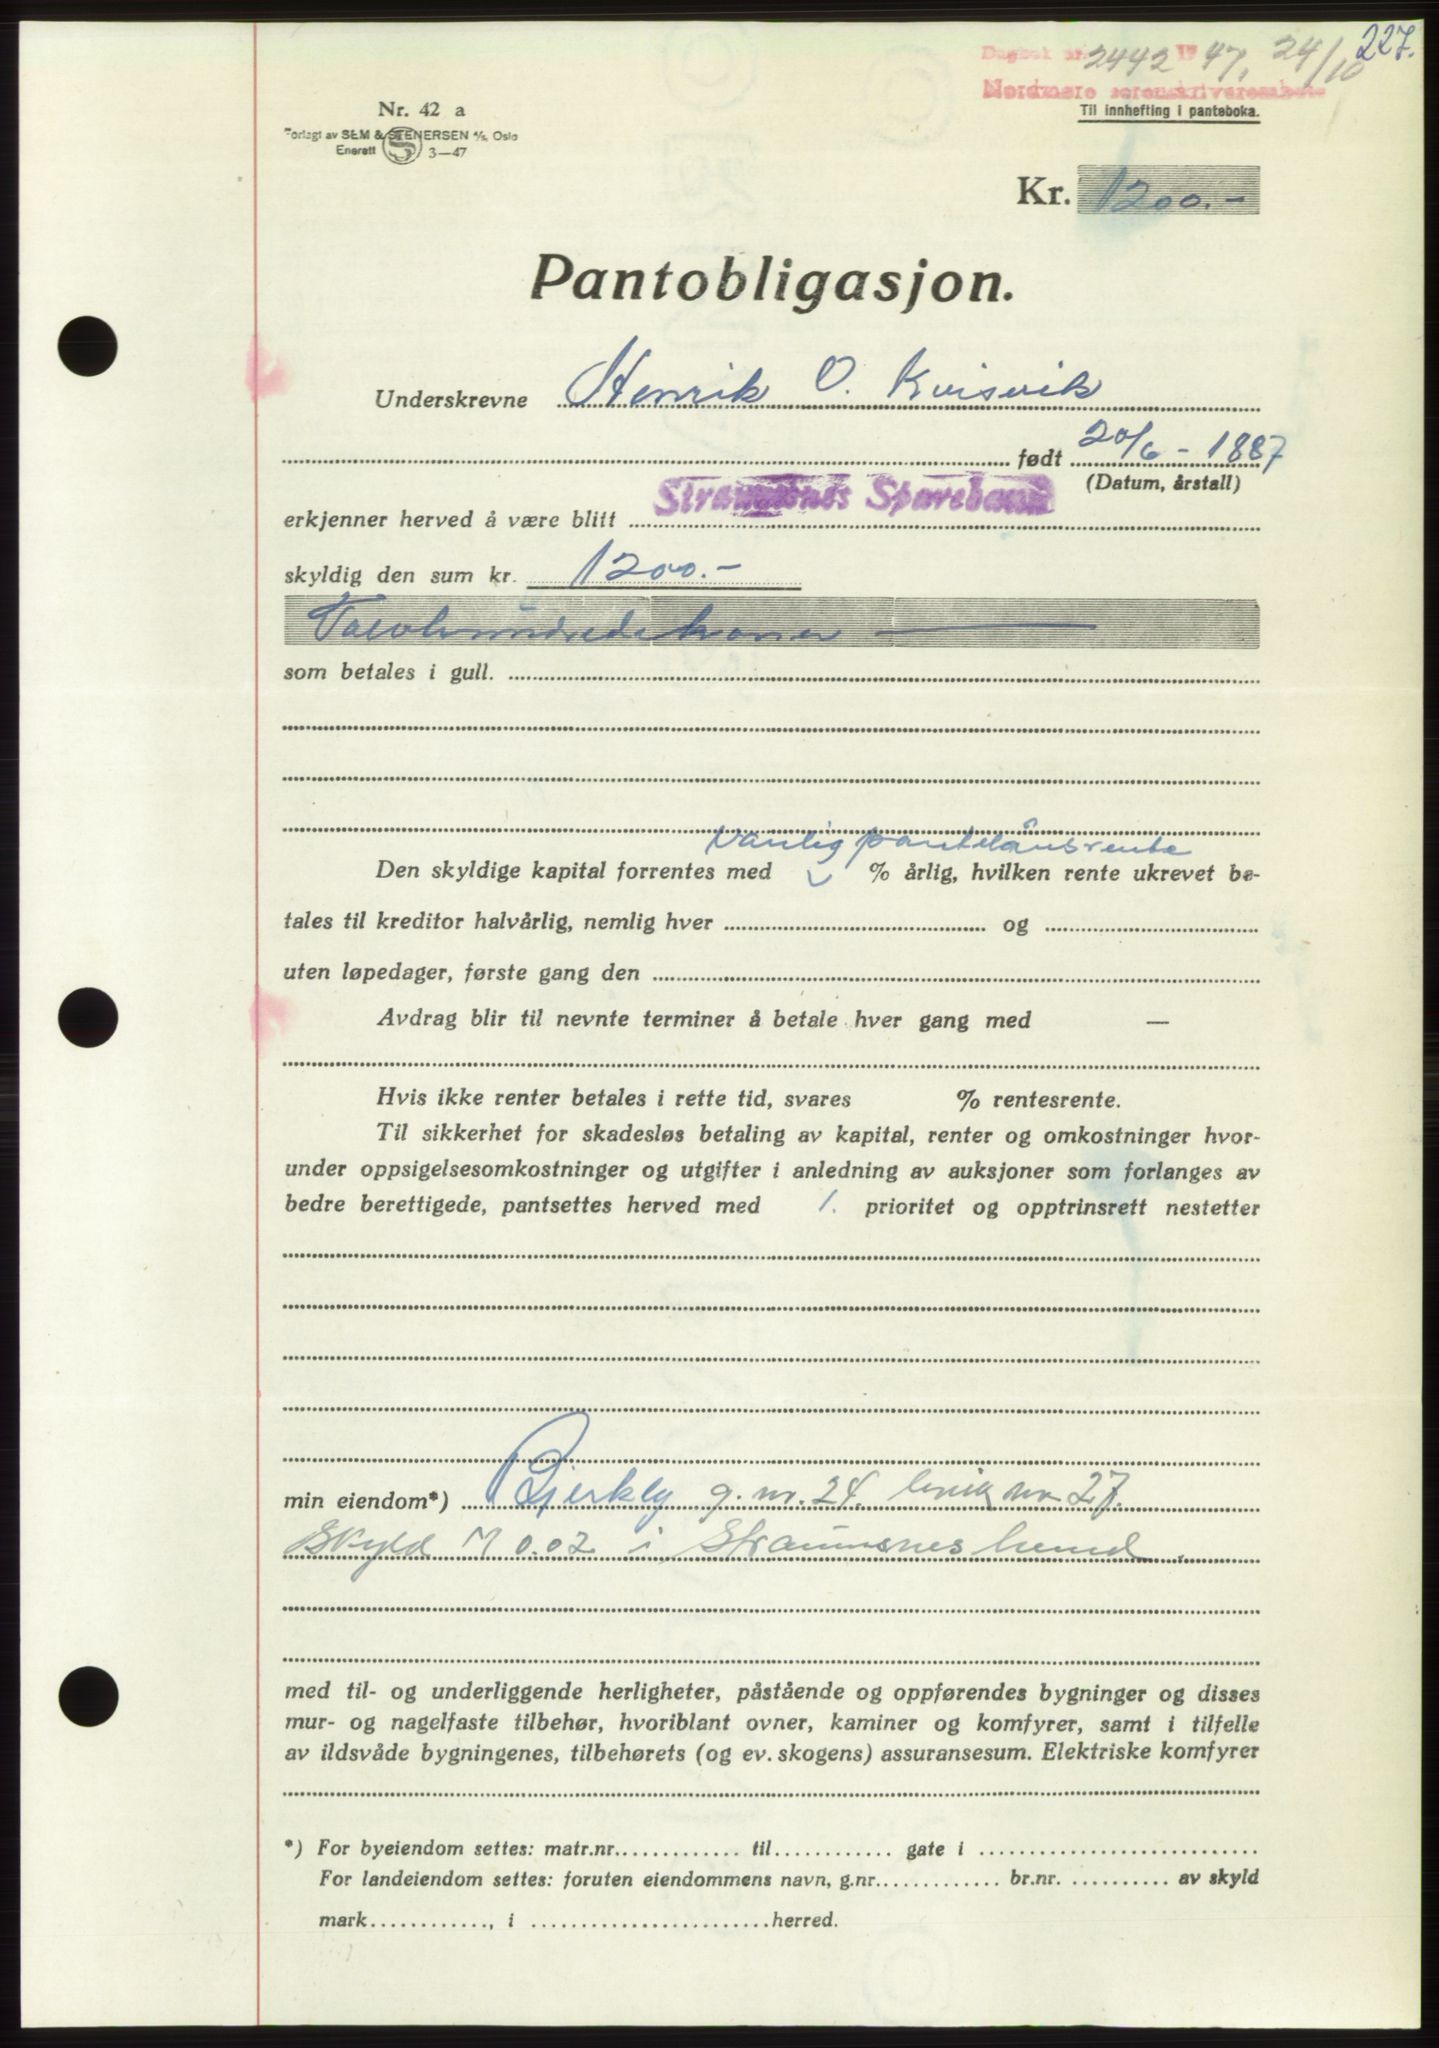 227.
Dagbok nr. 2442 19 47, 24/10
Nordmøre sorenskriverembete
Til innhefting i panteboka.
Nr. 42 a
Forlagt av SEM & STENERSEN A/S, Oslo
Enerett S 3—47
Kr. 1200.-
Pantobligasjon.
Underskrevne Henrik O. Kvisvik
født 20/6 - 1887
(Datum, årstall)
erkjenner herved å være blitt Straumsnes Sparebank
skyldig den sum kr. 1200.-
Tolvhundredekroner
som betales i gull.
Vanlig pantelånsrente
Den skyldige kapital forrentes med % årlig, hvilken rente ukrevet be-
tales til kreditor halvårlig, nemlig hver og
uten løpedager, første gang den
Avdrag blir til nevnte terminer å betale hver gang med —
Hvis ikke renter betales i rette tid, svares % rentesrente.
Til sikkerhet for skadesløs betaling av kapital, renter og omkostninger hvor-
under oppsigelsesomkostninger og utgifter i anledning av auksjoner som forlanges av
bedre berettigede, pantsettes herved med 1. prioritet og opptrinsrett nestetter
min eiendom*) Bjerkly g. nr. 24. bruk nr 27.
Skyld M 0.02 i Straumsnes herred.
med til- og underliggende herligheter, påstående og oppførendes bygninger og disses
mur- og nagelfaste tilbehør, hvoriblant ovner, kaminer og komfyrer, samt i tilfelle
av ildsvåde bygningenes, tilbehørets (og ev. skogens) assuransesum. Elektriske komfyrer
*) For byeiendom settes: matr.nr. til gate i
For landeiendom settes: foruten eiendommens navn, g.nr. br.nr. av skyld
mark , i herred.